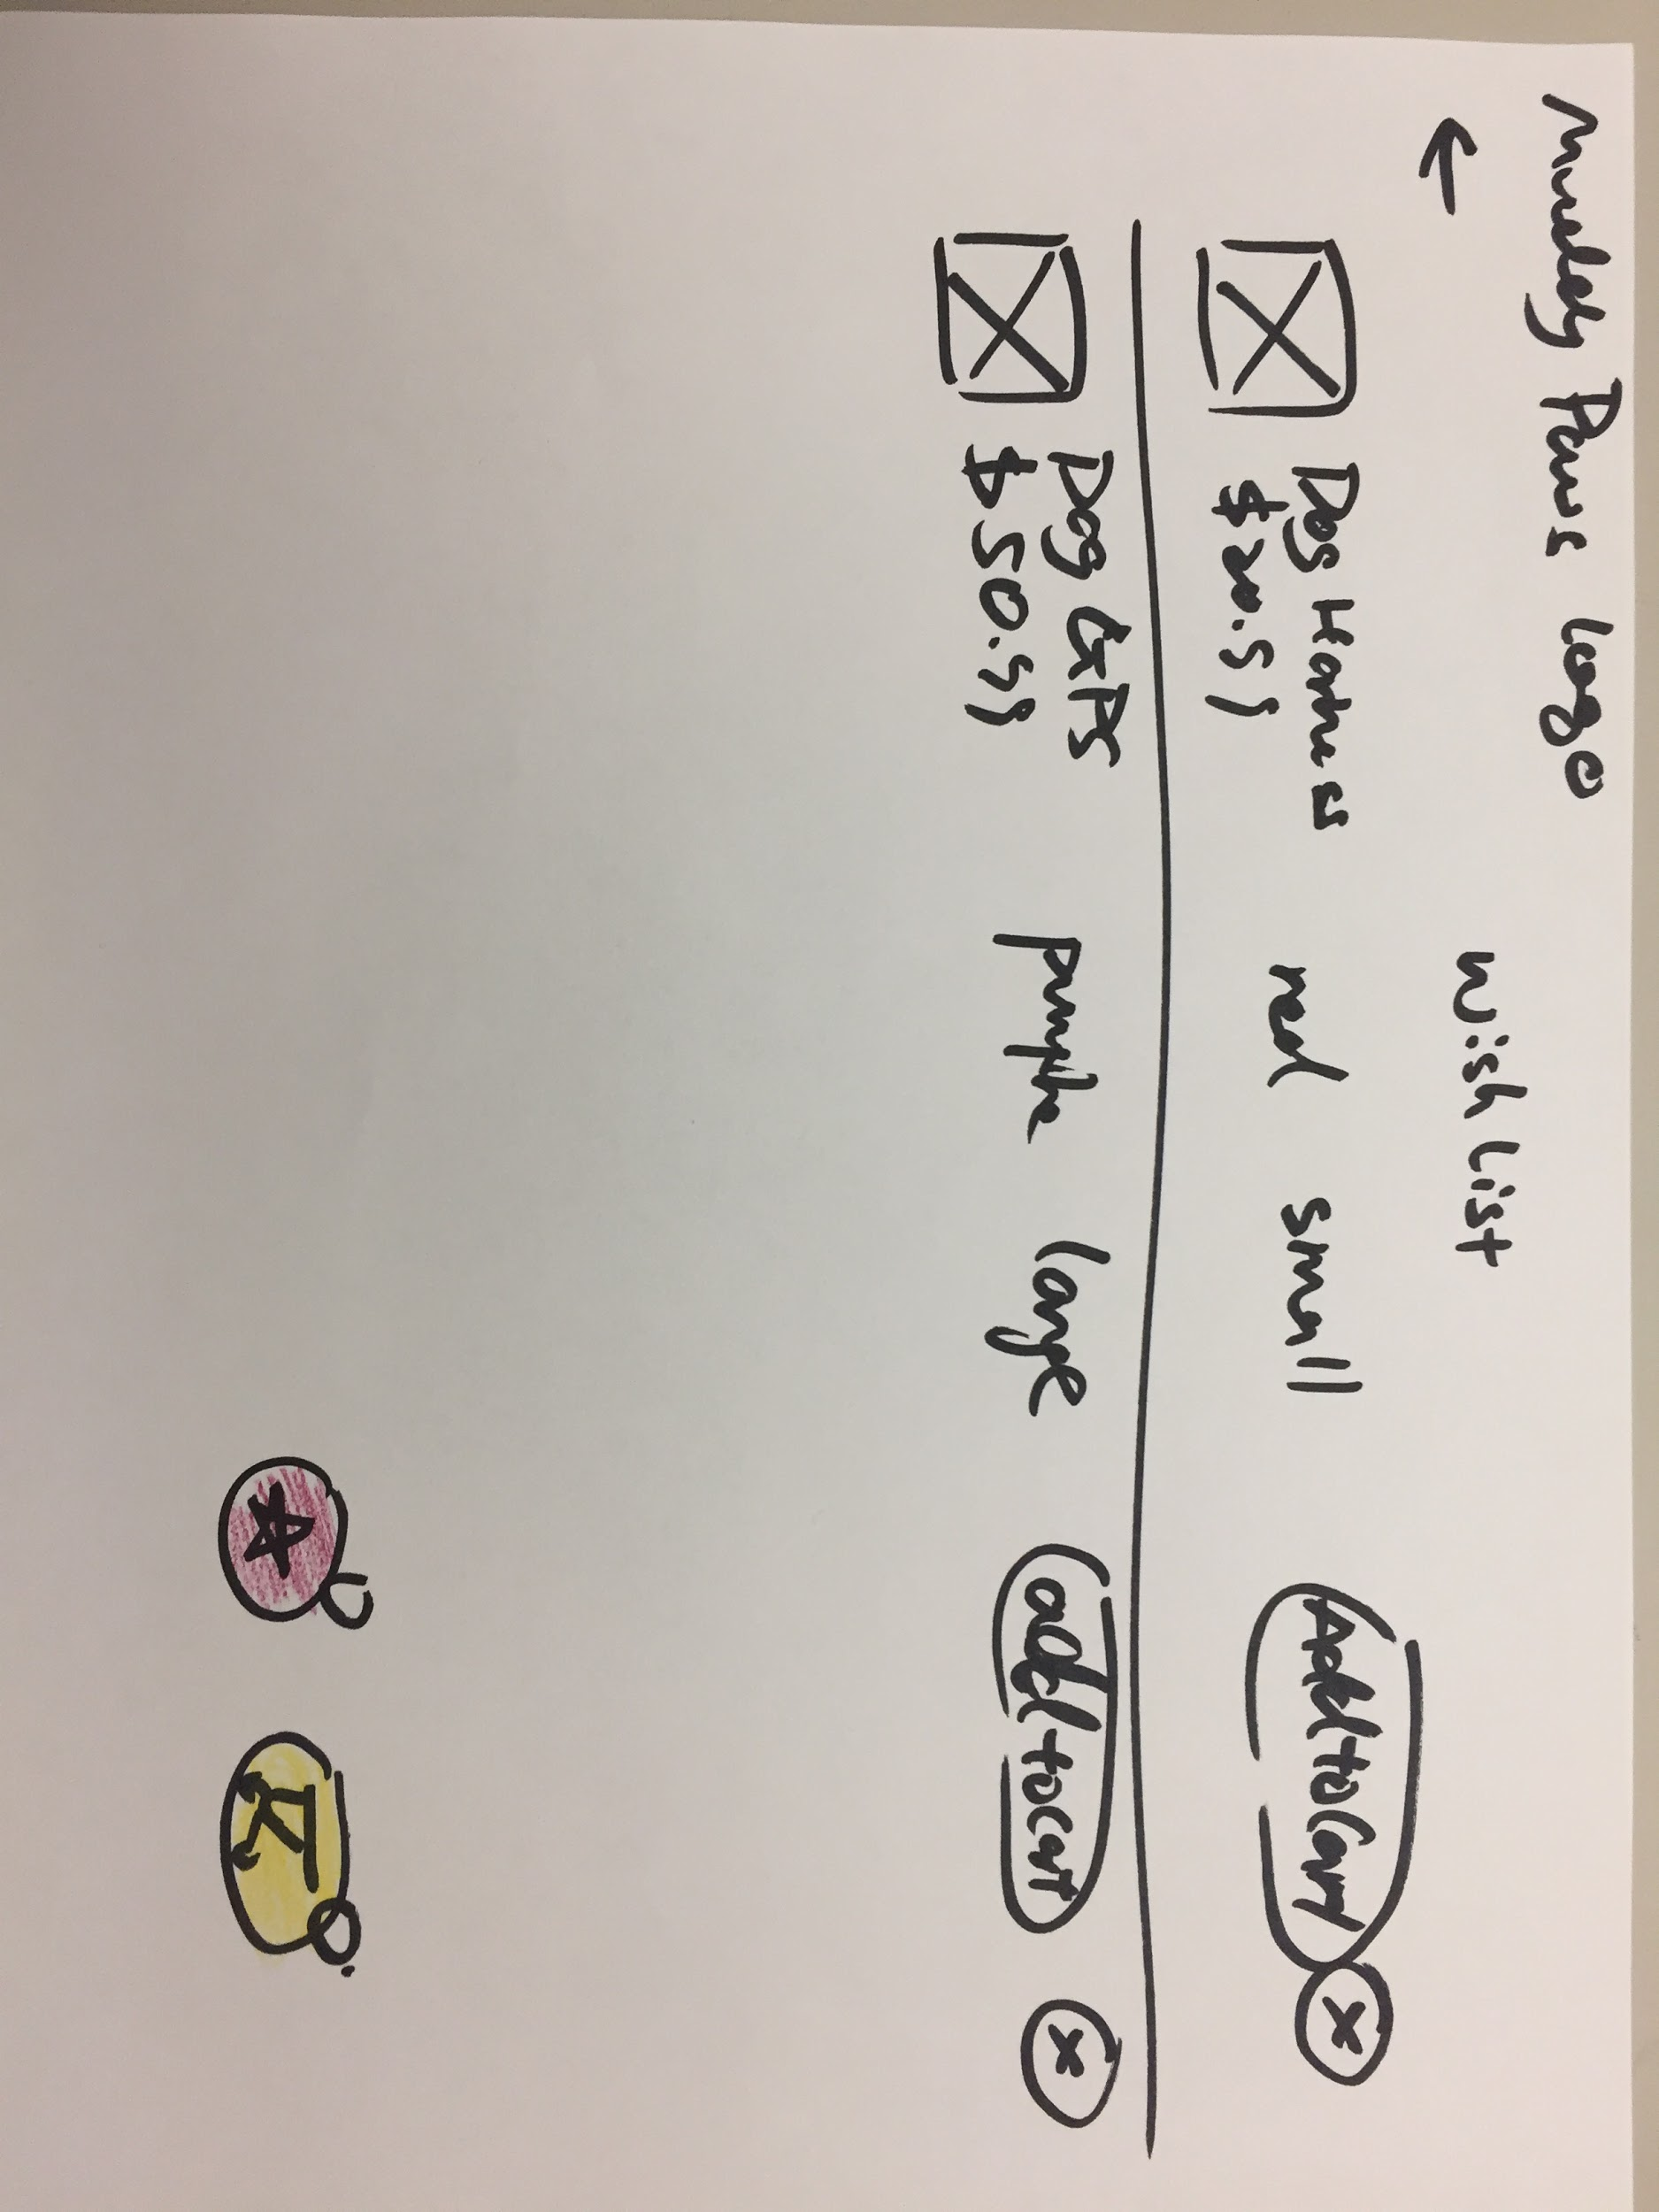 Muddy Paws Logo
←
Wish List
Dog Harness
red
small
Add to Cart
x
Dog GPS
$50.99
purple
large
add to cart
x